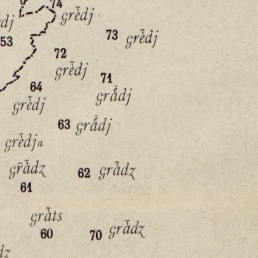 74
grẽdj
dj
53
73 grẽdj
72
grẽdj
71
64
grẽdj
grå̃dj
63 grå̃dj
grẽdja
grãdz
62 grãdz
61
gråts
60
70 grãdz
dz